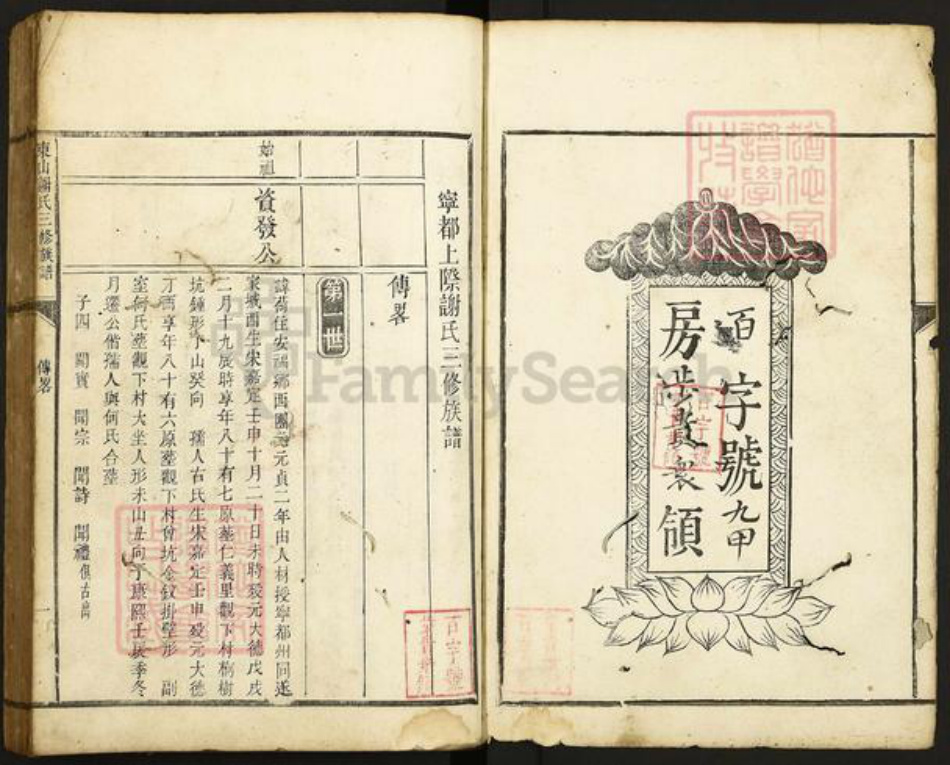 百字號九甲
房 製領
寧都上際謝氏三修族譜
傳畧
第一世
始祖
資發公
諱荷住安福鄉西團元元貞二年由人材授寧都州同遂
家城酉生宋嘉定壬申十月二十日未時歿元大德戊戌
二月十九辰時享年八十有七原塟仁義里觀下村樹樹
坑鍾形 山癸向 孺人右氏生宋嘉定壬申歿元大德
丁酉享年八十有六原塟觀下村曾坑金釵掛壁形 副
室何氏塟觀下村大坐人形未山丑向于康熙壬辰季冬
月遷公偕孺人與何氏合塟
子四 聞寶 聞宗 聞詩 聞禮俱古出
東山謝氏三修族譜
傳畧
一
百字號
FamilySearch